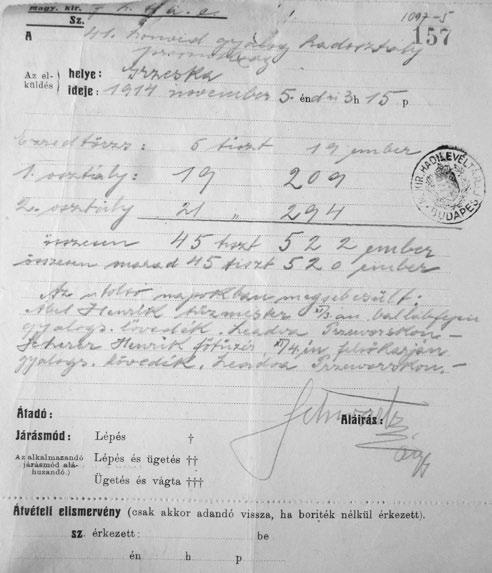 magy. kir.
Sz.
1097-5
157
A 41. honvéd gyalog hadosztály
Az el-
küldés
helye: Grzeska
ideje: 1914 november 5-én d.u. 3 h 15 p
Ezredtörzs: 5 tiszt 19 ember
1. osztály: 19 209
2. osztály 21 " 294
összesen 45 tiszt 522 ember
összesen marad 45 tiszt 520 ember
Az utolsó napokban megsebesült:
Abel Henrik tűzmester XI/3.-án ballábfején
gyalogs. lövedék. Leadva Przeworskon.-
Henrik főtüzér XI/4.én felsőkarján
gyalogs. lövedék. Leadva Przeworskon.-
M. KIR. HADILEVÉLTÁR
BUDAPEST
Átadó:
Aláírás:
Járásmód: Lépés †
Az alkalmazandó
járásmód alá-
huzandó.)
Lépés és ügetés ††
Ügetés és vágta †††
Átvételi elismervény (csak akkor adandó vissza, ha boriték nélkül érkezett).
sz. érkezett: be
én h p